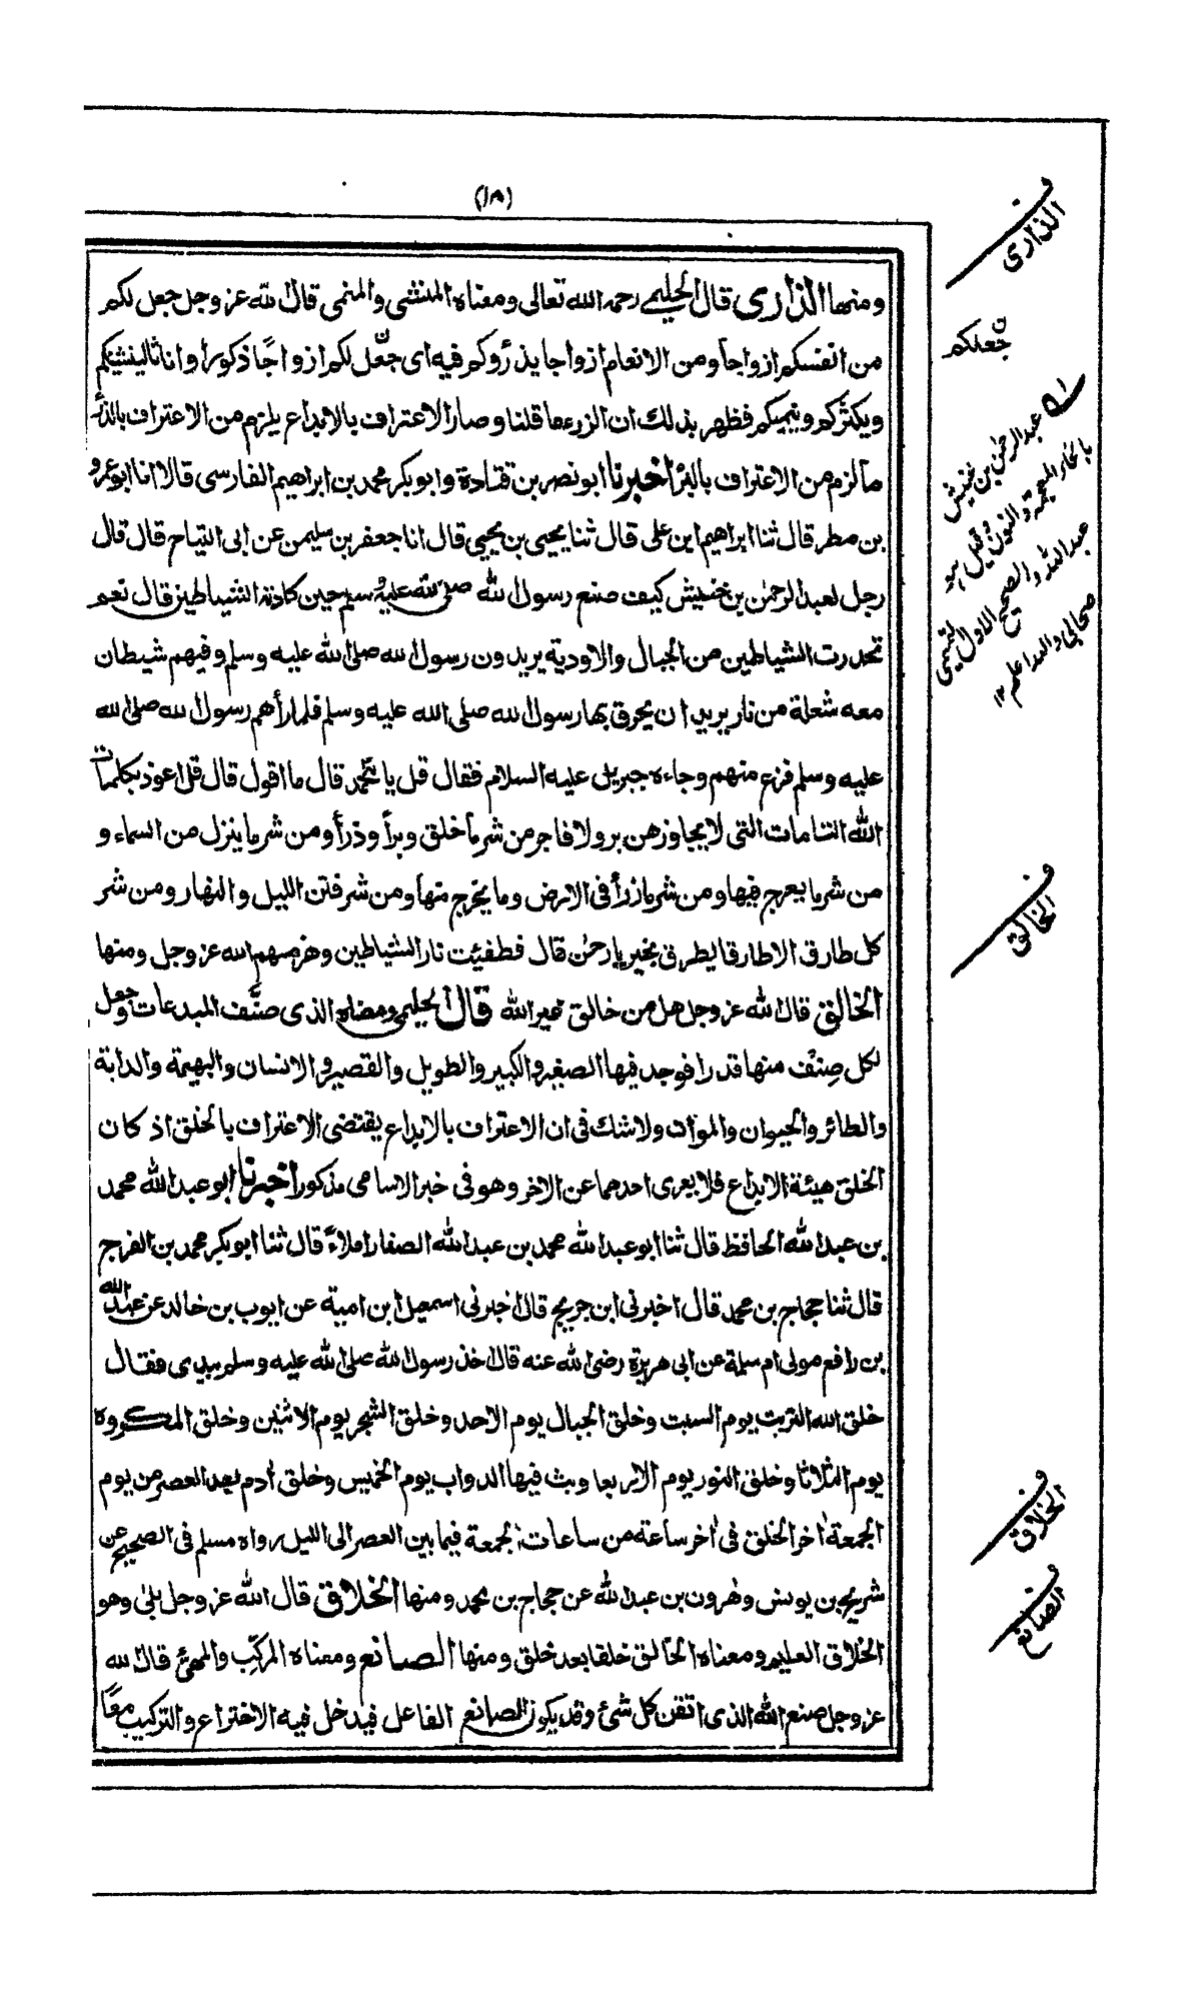 (١٨)
ومنها الذارى قال الحليمى رحمه الله تعالى ومعناه المنشى والمنمى قال الله عز وجل جعل لكم
من انفسكم ازواجا ومن الانعام ازواجا يذرؤكم فيه اى جعل لكم ازواجًا ذكورا واناثا لينشيئكم
ويكثركم وينميكم فظهر بذلك ان الذرء ما قلنا وصار الاعتراف بالابداع يلزم من الاعتراف بالذرأ
ما لزم من الاعتراف بالبرأ اخبرنا ابو نصر بن قتادة وابو بكر محمد بن ابراهيم الفارسى قالا انا ابو عمرو
بن مطر قال ثنا ابراهيم ابن على قال ثنا يحيى بن يحيى قال انا جعفر بن سليمن عن ابى التياح قال قال
رجل لعبد الرحمٰن بن خنبش كيف صنع رسول الله صلى الله عليه وسلم حين كادته الشياطين قال نعم
تحدرت الشياطين من الجبال والاودية يريدون رسول الله صلى الله عليه وسلم وفيهم شيطان
معه شعلة من نار يريد ان يحرق بها رسول الله صلى الله عليه وسلم فلما رأهم رسول الله صلى الله
عليه وسلم فزع منهم وجاءه جبريل عليه السلام فقال قل يا محمد قال ما اقول قال قل اعوذ بكلمات
الله التامات التى لا يجاوزهن بر ولا فاجر من شر ما خلق وبرأ وذرأ ومن شر ما ينزل من السماء و
من شر ما يعرج فيها ومن شر ما ذرأ فى الارض وما يخرج منها ومن شر فتن الليل والنهار ومن شر
كل طارق الا طارقا يطرق بخير يا رحمٰن قال فطفيئت نار الشياطين وهزمهم الله عز وجل ومنها
الخالق قال الله عز وجل هل من خالق غير الله قال الحليمى ومعناه الذى صنَّف المبدعات وجعل
لكل صِنْف منها قدرا فوجد فيها الصغير والكبير والطويل والقصير والانسان والبهيمة والدابة
والطائر والحيوان والموات ولا شك فى ان الاعتراف بالابداع يقتضى الاعتراف بالخلق اذ كان
الخلق هيئة الابداع فلا يعرى احدهما عن الاخر وهو فى خبر الاسامى مذكور اخبرنا ابو عبد الله محمد
بن عبد الله الحافظ قال ثنا ابو عبد الله محمد بن عبد الله الصفار املاءً قال ثنا ابو بكر محمد بن الفرج
قال ثنا حجاج بن محمد قال اخبرنى ابن جريج قال اخبرنى اسمعيل ابن امية عن ايوب بن خالد عن عبد الله
بن رافع مولى ام سلمة عن ابى هريرة رضى الله عنه قال اخذ رسول الله صلى الله عليه وسلم بيدى فقال
خلق الله التربت يوم السبت وخلق الجبال يوم الاحد وخلق الشجر يوم الاثنين وخلق المكروه
يوم الثلاثا وخلق النور يوم الاربعا وبث فيها الدواب يوم الخميس وخلق اٰدم بعد العصر من يوم
الجمعة اٰخر الخلق فى اٰخر ساعة من ساعات الجمعة فيما بين العصر الى الليل رواه مسلم فى الصحيح عن
شريح بن يونس وهٰرون بن عبد الله عن حجاج بن محمد ومنها الخلاق قال الله عز وجل بلىٰ وهو
الخلاق العليم ومعناه الخالق خلقا بعد خلق ومنها الصانع ومعناه المركِّب والمهيئ قال الله
عز وجل صنع الله الذى اتقن كل شئ وقد يكون الصانع الفاعل فيدخل فيه الاختراع والتركيب معًا
ف
الذارى
ن
جعلكم
عبد الرحمٰن بن خنبش
بالخاء المعجمة والنون وقيل هو
عبد الله والصحيح الاول التميمى
صحابى والله اعلم ١٢
ف
الخالق
ف
الخلاق
ف
الصانع